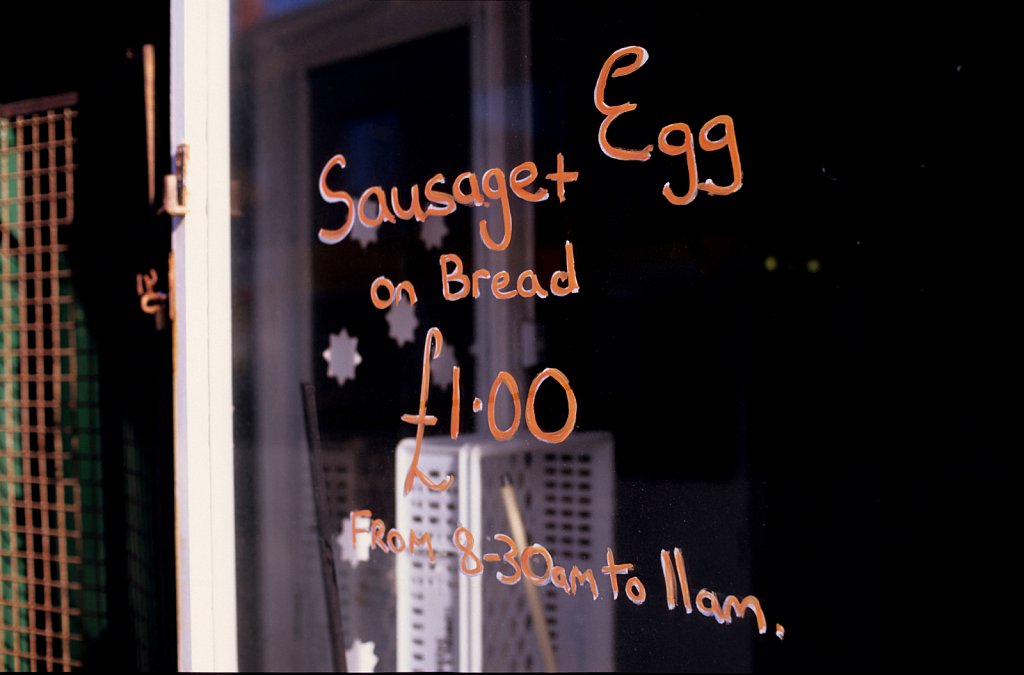 Sausage + Egg
on Bread
£1·00
From 8-30am to 11am.